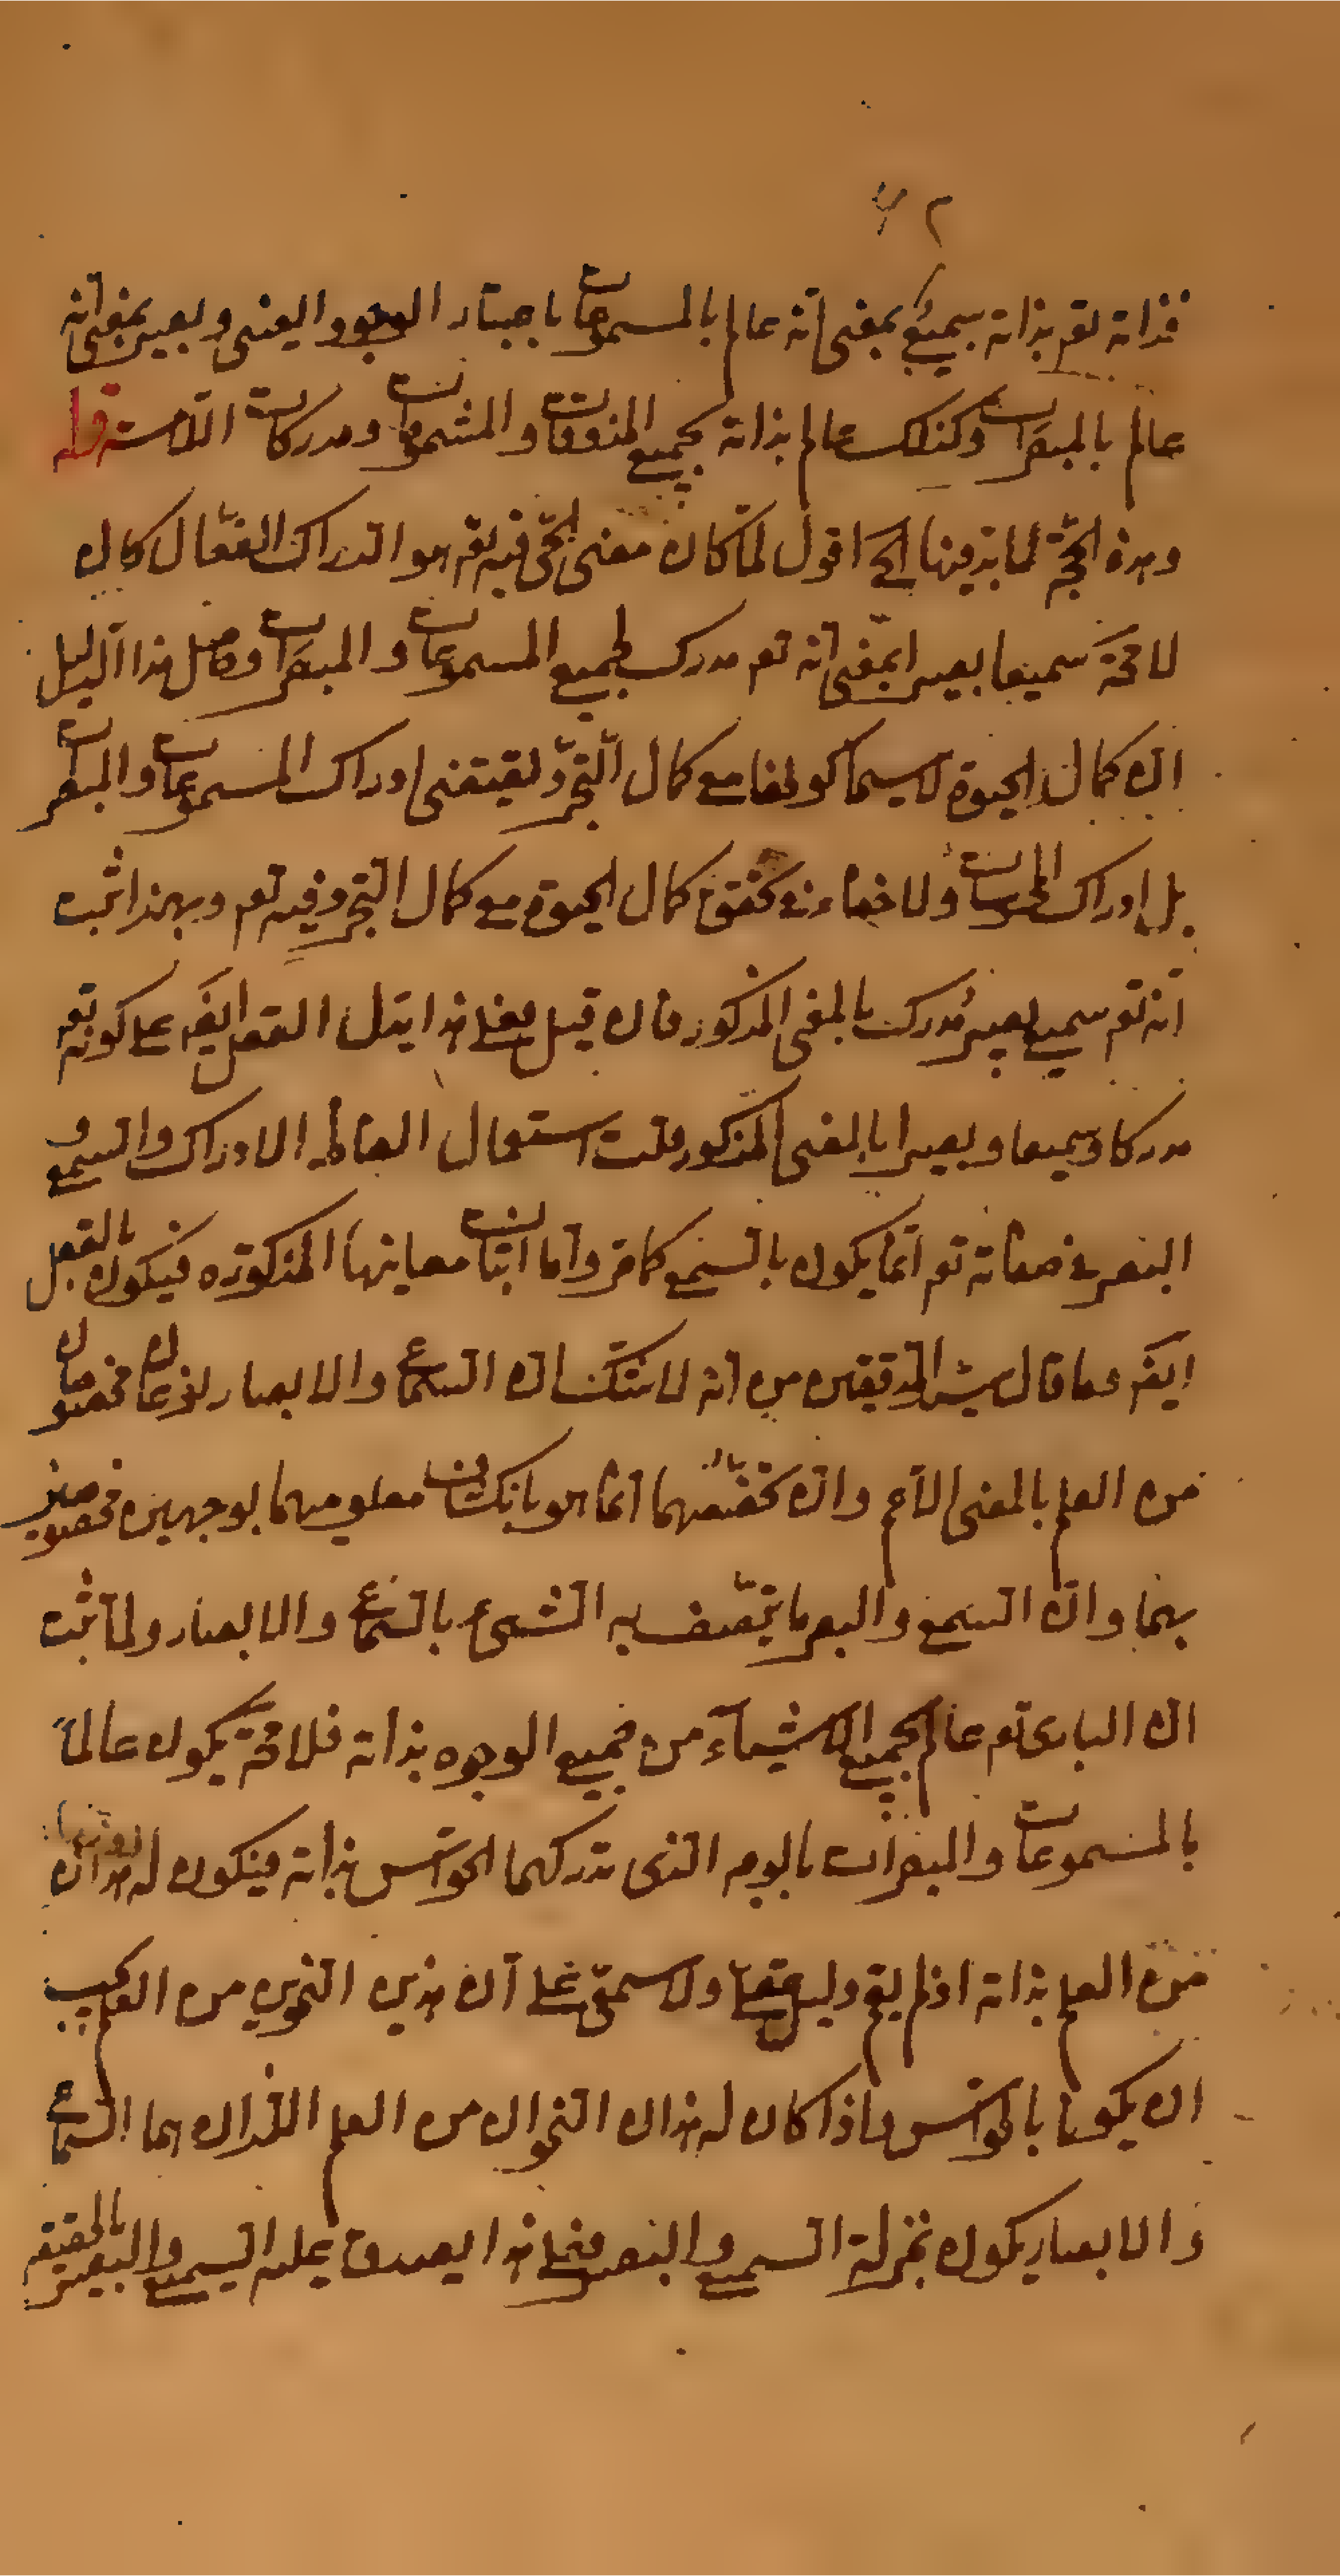 ٤٢
فذاته تعم بذاته سميع بمعنى انه عالم بالمسموعات باعتبار الوجود العينى وبصير بمعنى انه
عالم بالمبصرات وكذلك عالم بذاته بجميع المذوقات والمشمومات ومدركات اللامسة قوله
وهذه الحجّة لما بد فيها الخ اقول لمّا كان معنى الحىّ فيه تعم هو الدراك الفعّال كان
لا محة سميعا بصيرا بمعنى انه تعم مدرك لجميع المسموعات والمبصرات وحاصل هذا الدليل
ان كمال الحيوة لا سيما كونها مع كمال التجرّد يقتضى ادراك المسموعات والمبصرات
بل ادراك المحسوسات ولا خفاء فى تحقق كمال الحيوة مع كمال التجرد فيه تعم وبهذا ثبت
انه تعم سميع بصير مدرك بالمعنى المذكور فان قيل فعلى هذا يدل العقل ايضَ على كونه تعم
مدركا وسميعا وبصيرا بالمعنى المذكور قلت استعمال الفاظ الادراك والسمع و
البصر فى صفاته تعم انّما يكون بالسمع كما مر واما اثبات معاينها المذكورة فيكون بالعقل
ايضَ كما قال سيد المدققين من انه لا شك ان السماع والابصار نوعان مخصوصان
من العلم بالمعنى الاعم وانّ تخصّصهما انما هو بانكشاف معلوميهما بوجهين مخصوصين
بهما وانّ السمع والبصر ما يتّصف به الشىء بالسماع والابصار ولما ثبت
ان البارى تعم عالم بجميع الاشياء من جميع الوجوه بذاته فلا محة يكون عالماً
بالمسموعات والمبصرات بالوجه الذى تدركهما الحواس بذاته فيكون له هذان
من العلم بذاته اذ لم يقم دليل عقلىّ ولا سمعىّ على ان هذين النحوين من العلم يجب
ان يكونا بالحواس واذا كان له هذان النحوان من العلم اللذان هما السماع
والابصار يكون بمنزلة السمع والبصر فعلى هذا يصدق عليه السميع والبصير بالحقيقة